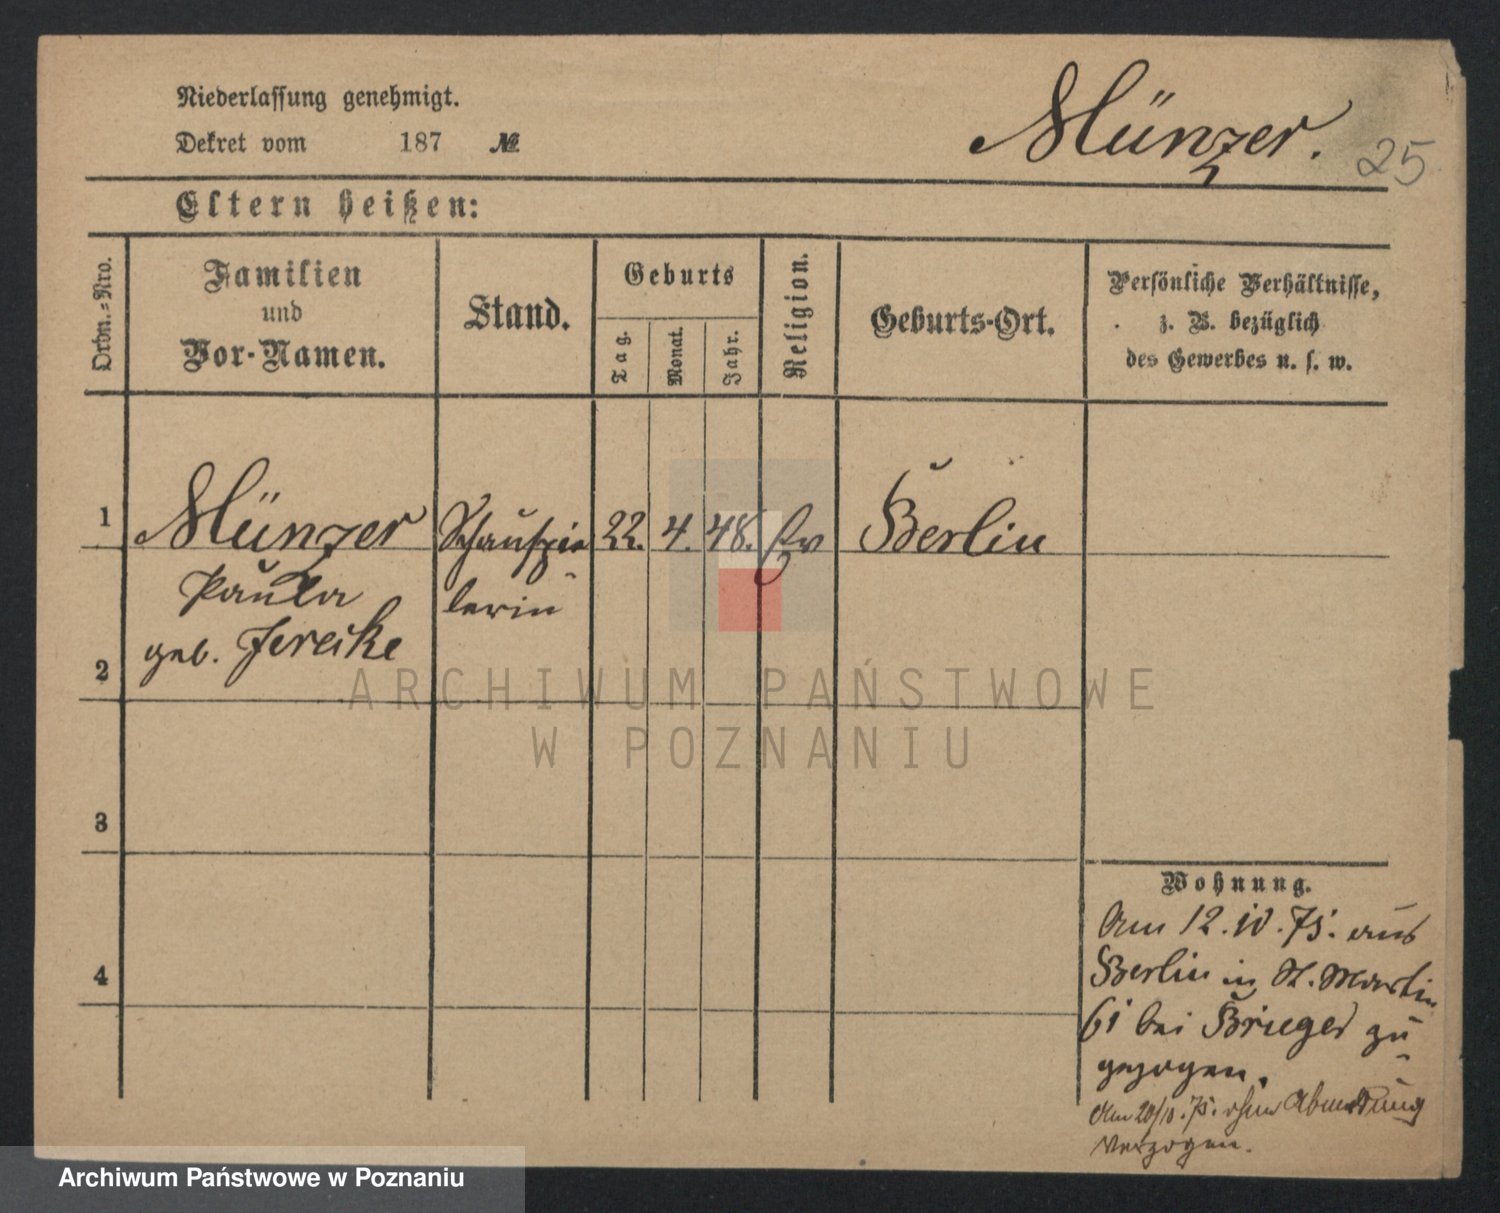 Niederlassung genehmigt.
Dekret vom 187 №
Münzer.
25
Eltern heißen:
Ordn.=Nro.
Familien
und
Vor-Namen.
Stand.
Geburts
Tag.
Monat.
Jahr.
Religion.
Geburts-Ort.
Persönliche Verhältnisse,
z. B. bezüglich
des Gewerbes u. s. w.
1
Münzer
Schauspie
22. 4. 48. Ev
Berlin
Paula
lerin
geb. Jereike
2
3
4
Wohnung.
Am 12.10.75. aus
Berlin in St. Martin
61 bei Brieger zu
gezogen.
Am 20/10.75. ohne Abmeldung
verzogen.
ARCHIWUM PAŃSTWOWE
W POZNANIU
Archiwum Państwowe w Poznaniu